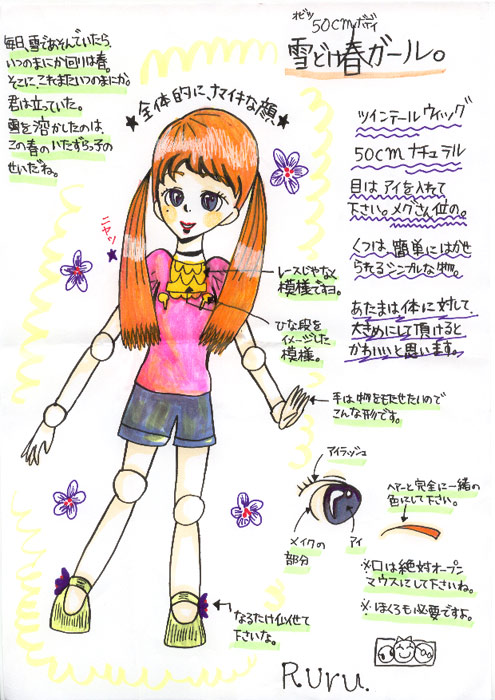 毎日、雪であそんでいたら、
いつのまにか回りは春。
そこに、これまたいつのまにか。
君は立っていた。
雪を溶かしたのは
この春のいたずらっ子の
せいだね。
50cmボディ
雪どけ春ガール。
★全体的に、ナマイキな顔、★
ニヤッ
ツインテールウィッグ
50cmナチュラル
目はアイを入れて
下さい。メグさん位の。
くつは、簡単にはかせ
られるシンプルな物。
あたまは体に対して、
大きめにして頂けると
かわいいと思います。
レースじゃなく
模様ですヨ。
ひな段を
イメージした
模様。
手は、物をもたせたいので
こんな形です。
アイラッシュ
メイクの
部分
アイ
ヘアーと完全に一緒の
色にして下さい。
※口は絶対オープン
マウスにして下さいね。
※ほくろも必要ですよ。
なるたけ似せて
下さいな。
Ruru.